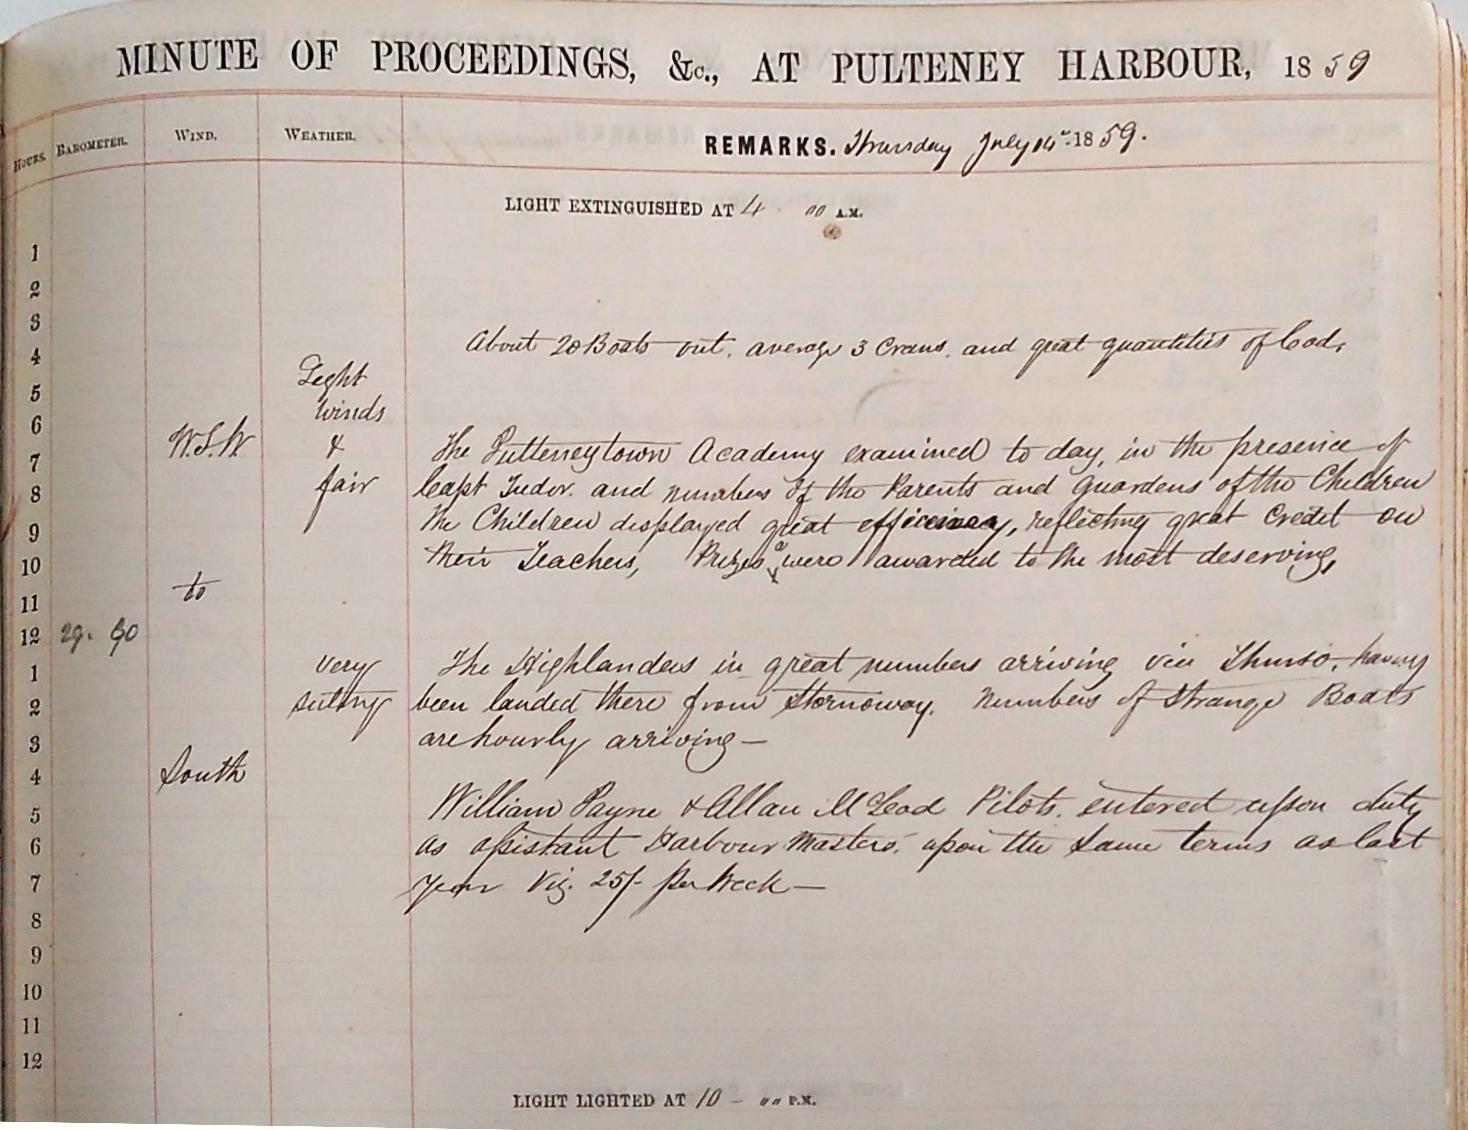 MINUTE OF PROCEEDINGS, &c., AT PULTENEY HARBOUR, 1859
HOURS. BAROMETER. WIND. WEATHER. REMARKS. Thursday July 14th 1859.
LIGHT EXTINGUISHED AT 4 00 A.M.
1
2
3
About 20 Boats out. average 3 Crans. and great quantities of Cod.
4
Light
5
winds
6
W.S.W. & The Pulteneytown Academy examined to day, in the presence of
7
fair Capt Tudor. and numbers of the Parents and guardens of the Children
8
The Children displayed great efficiency, reflecting great credit on
9
their Teachers, Prizes were awarded to the most deserving,
10
to
11
12 29. 90
very The Highlanders in great numbers arriving via Thurso. having
1
sultry been landed there from Stornoway. Numbers of Strange Boats
2
are hourly arriving —
3
South
4
William Payne & Allan McLeod Pilots. entered upon duty
5
as assistant Harbour Masters. upon the same terms as last
6
year Viz. 25/- per Week —
7
8
9
10
11
12
LIGHT LIGHTED AT 10 - 00 P.M.